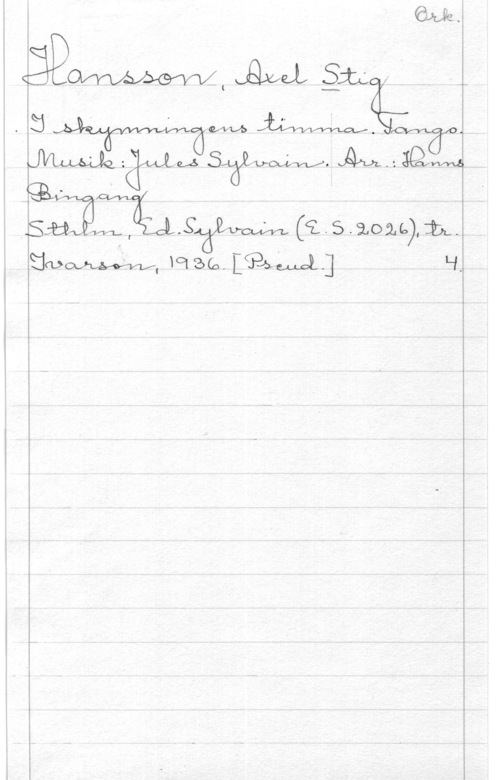 Ork.
Hansson, Axel Stig
I skymningens timma. Tango.
Musik: Jules Sylvain. Arr.: Hanns
Bingang
Sthlm, Ed. Sylvain (E.S.2026), tr.
Ivarson, 1936. [Pseud.] 4.